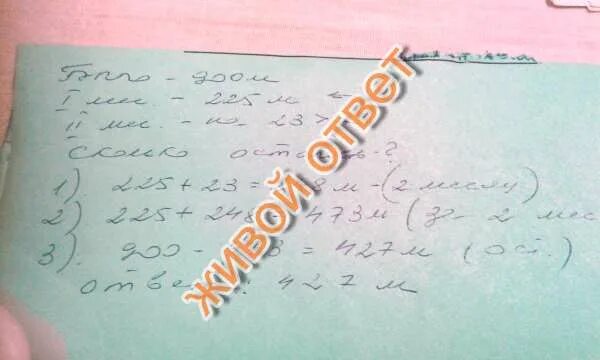 Было - 900 м
I мес. - 225 м ←
II мес. - на 23 >
Сколко осталось - ?
1) 225 + 23 = 8 м - (2 месяц)
2) 225 + 248 473 м (за 2 мес
3). 900 - 3 = 427 м (ост.)
ответ: 427 м
ЖИВОЙ ОТВЕТ